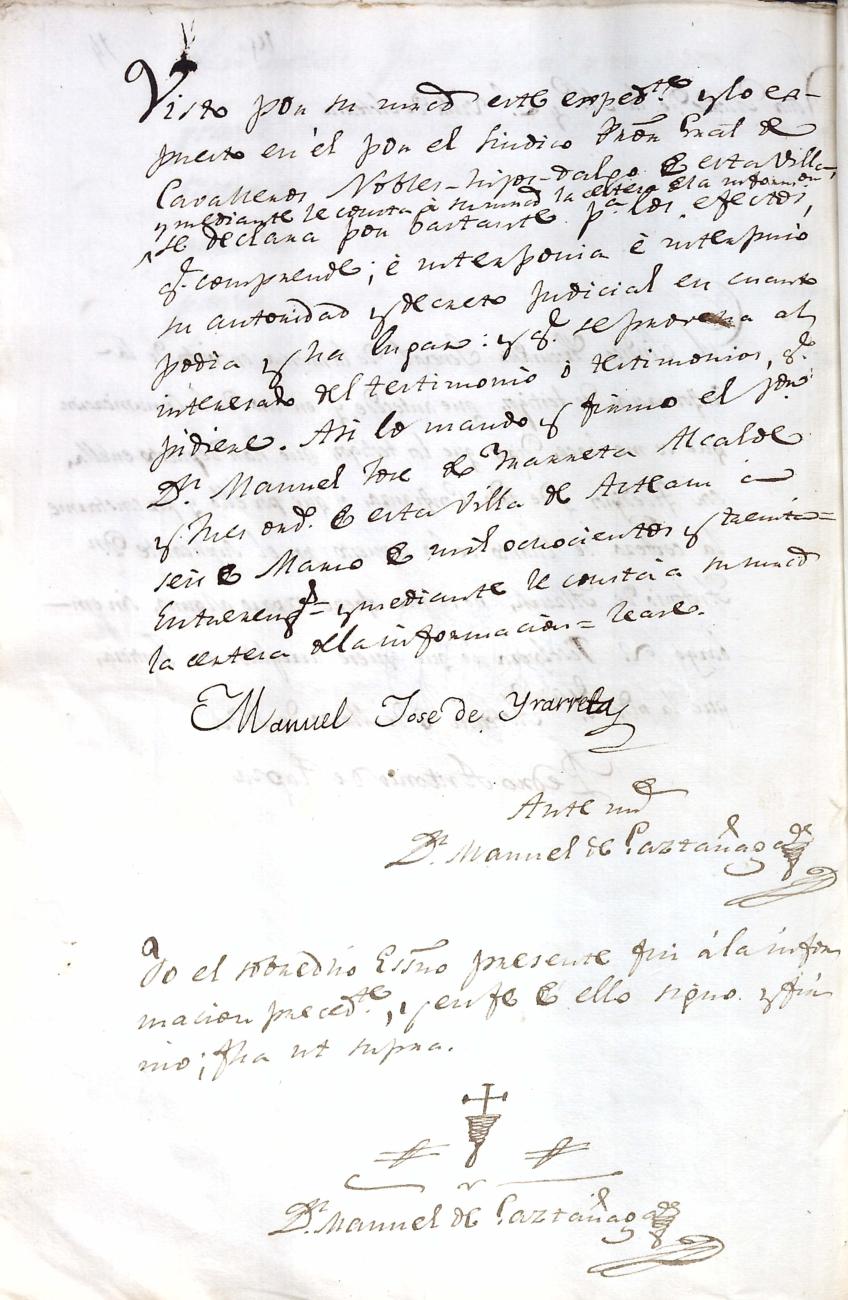 Visto por su mrcd este exped.te y lo es-
puesto en él por el Sindico Pror̃ Gral de
Cavalleros Nobles-hijos-dalgo de esta Villa,
y mediante le consta á su mrcd la certeza de la informaon,
se declara por bastante p.a los efectos,
q.e comprende; é interponia é interpuso
su autoridad y decreto judicial en cuanto
podia y ha lugar: y q.e se provea al
interesado del testimonio ó testimonios, q.e
pidiere. Asi lo mando y firmo el Sor
Dn. Manuel Jose de Yrarreta Alcalde
y Juez ord.o de esta Villa de Arteaza á
seis de Marzo de mil ochocientos y treinta=
Entrereng.s= y mediante le consta á su mrcd
la certeza de la informacion= lease.
Manuel Jose de Yrarreta
Ante mi
Dn. Manuel de Gaztañaga
Yo el sobredho Essno presente fui á la infor
macion preced.te, y en fe de ello signo y fir
mo; fha ut supra.
Dn. Manuel de Gaztañaga